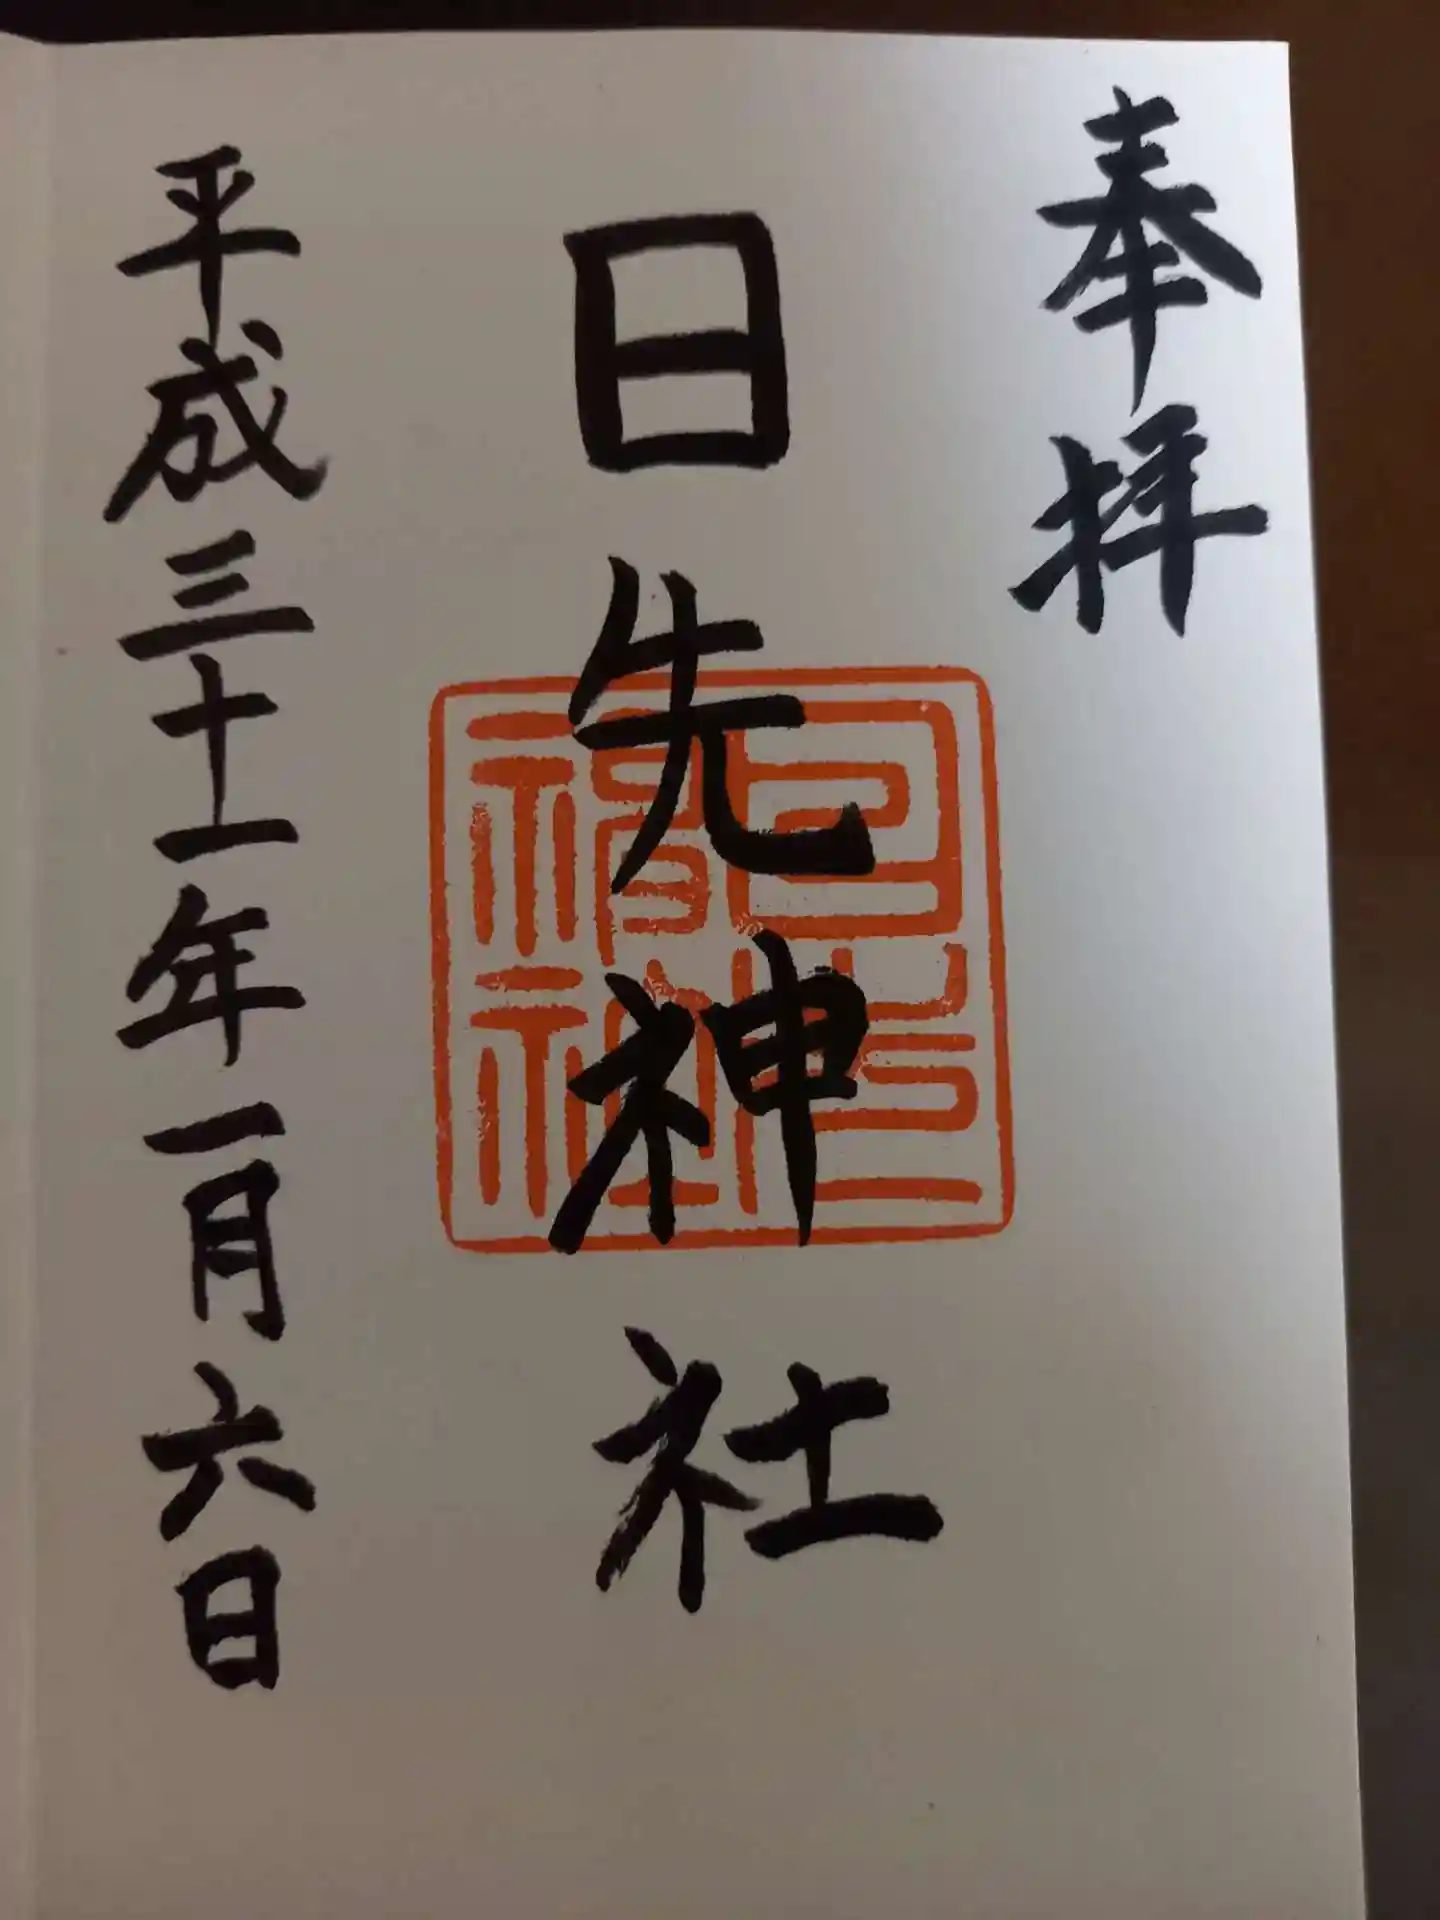 奉拝
日先神社
日先神社
平成三十一年一月六日